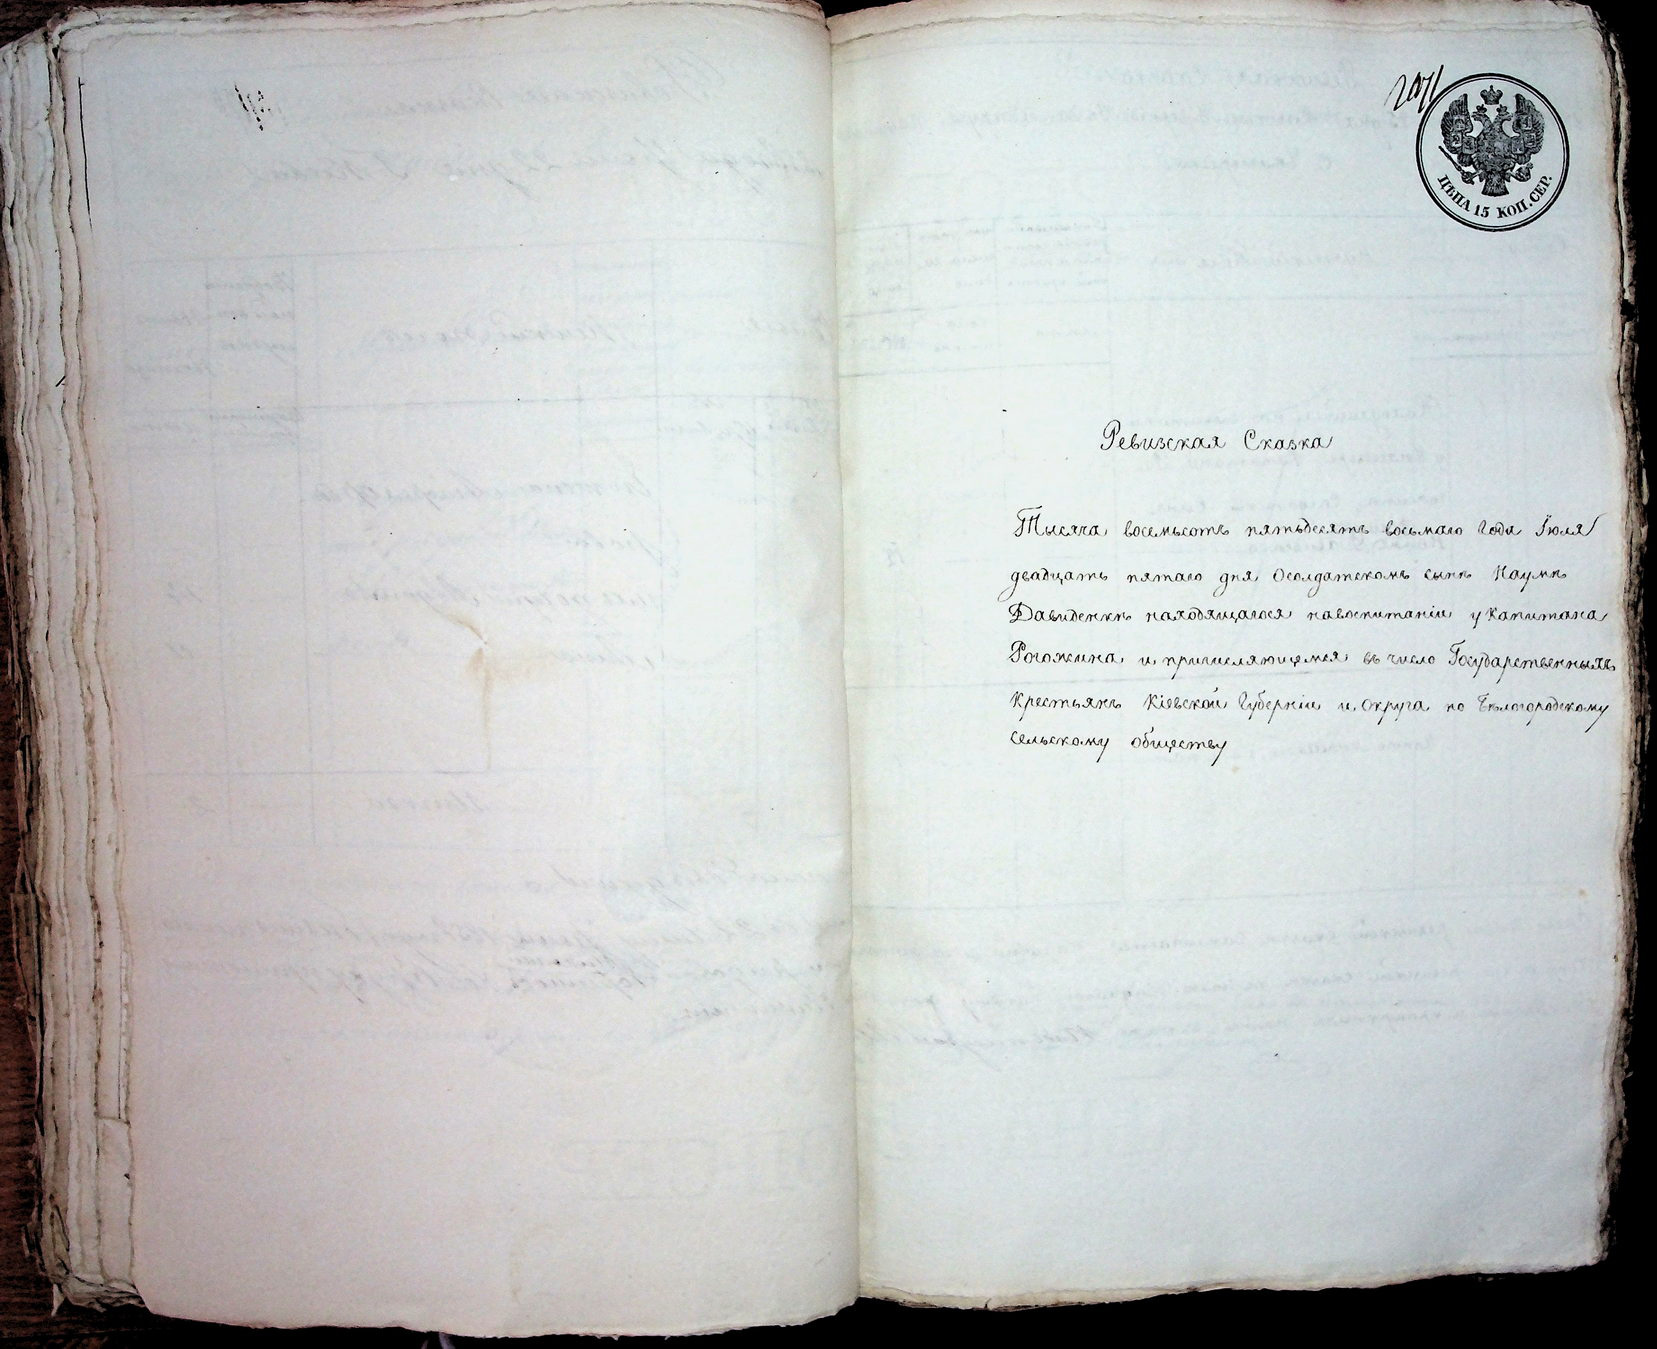 ЦѢНА 15 КОП. СЕР.
Ревизская Сказка
Тысяча восемьсотъ пятьдесятъ восьмаго года Іюля
двадцать пятаго дня Осолдатскомъ сынѣ Наумѣ
Давиденкѣ находящагося навоспитаніи у Капитана
Рогожина и причисляющемся въ число Государственныхъ
Крестьянъ Кіевской Губерніи и Округа по Бѣлогородскому
сельскому обществу